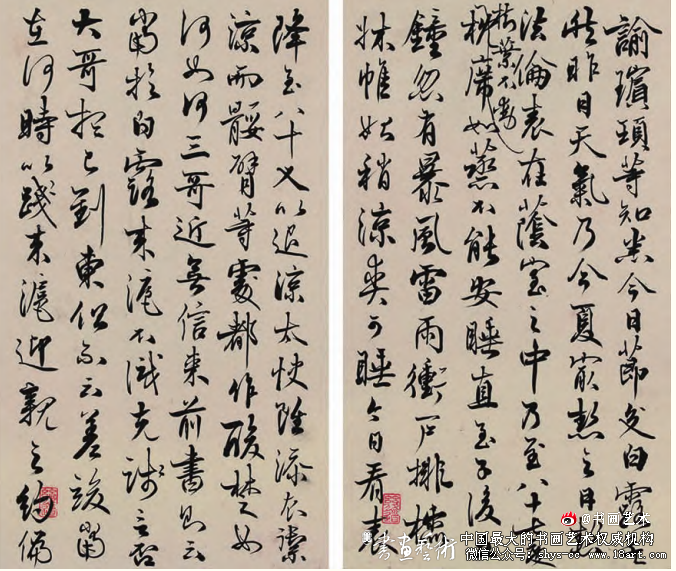 諭瑸頊等知悉今日節交白露矣
然昨日天氣乃今夏最熱之日
法倫表在蔭室之中乃至八十度
樹葉不動
枕席如蒸不能安睡直至子後
鐘忽有暴風雷雨衝戶排
牀帷始稍涼爽可睡今日看表
降至八十又以退涼太快雖添衣禦
涼而腰臂等處都作酸楚如
何如何三哥近無信來前書則云
當於白露來滬不識克踐言否
大哥想已到東但云當
在何時以踐來滬迎親之約佩
@书画艺术
書畫藝術 中国最大的书画艺术权威机构
微信公众号:shys-cc www.18art.com